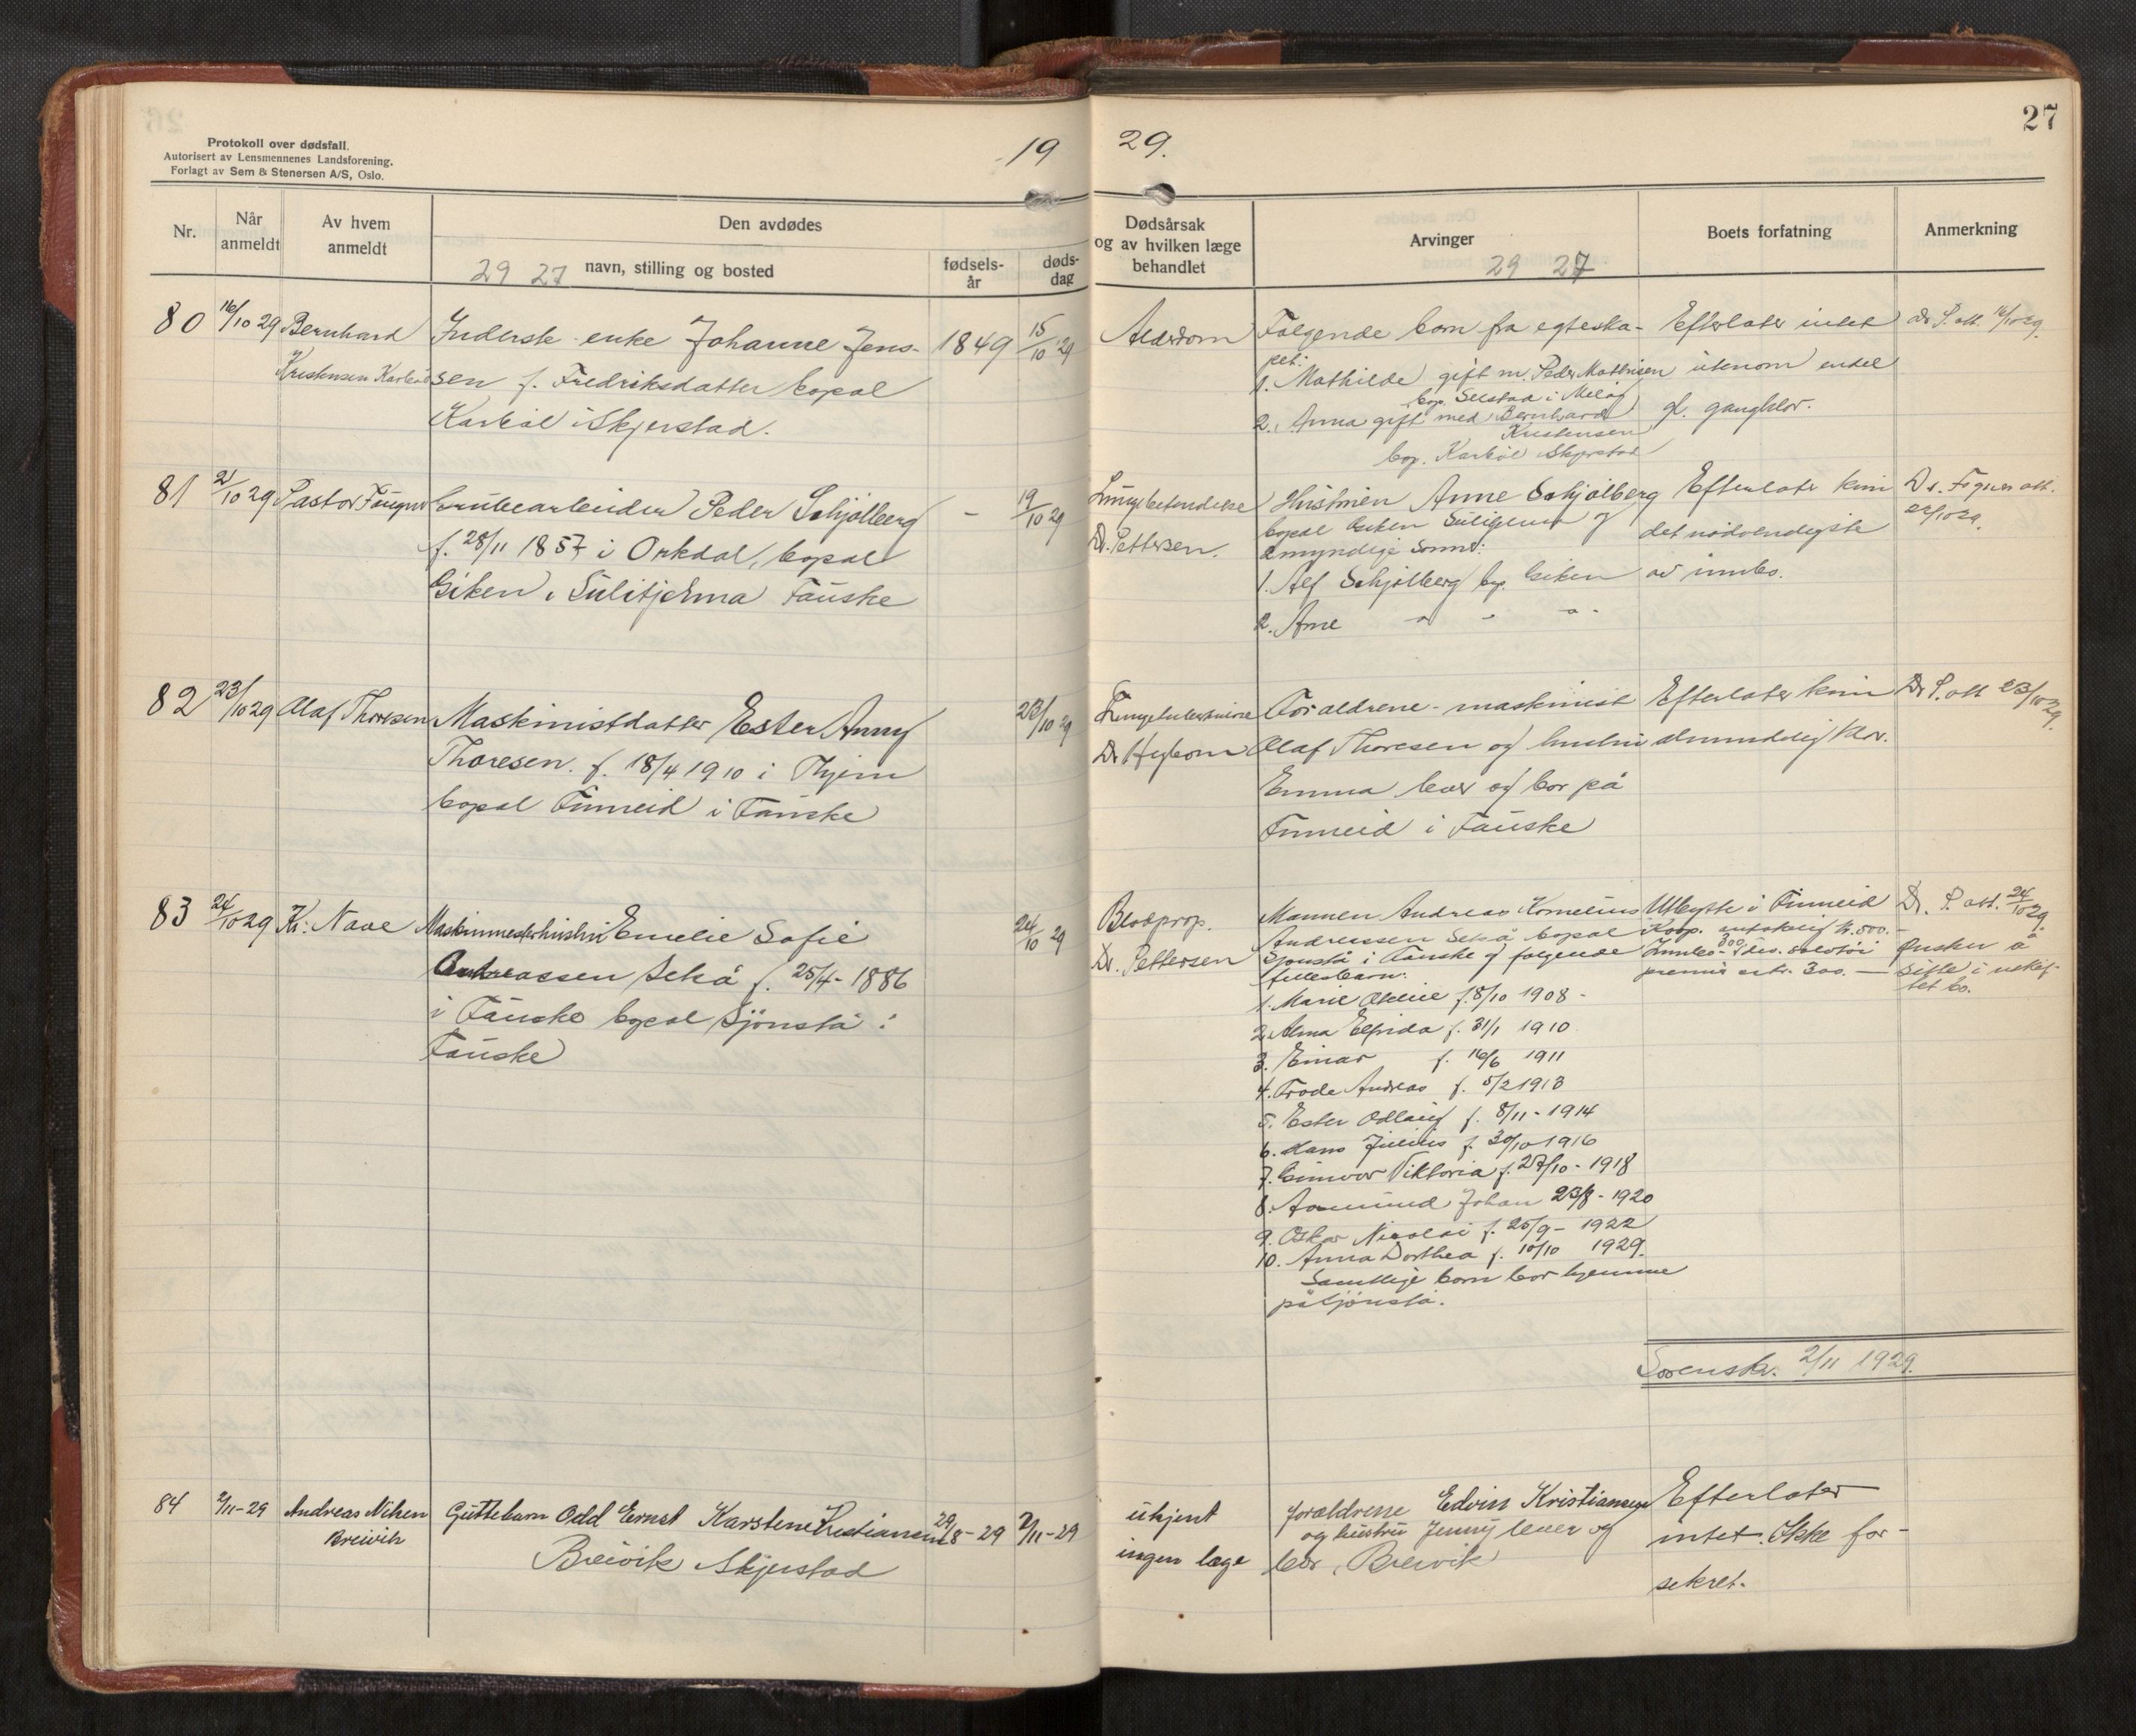 27
Protokoll over dødsfall.
Autorisert av Lensmennenes Landsforening.
Forlagt av Sem & Stenersen A/S, Oslo.
19 29.
Nr.
Når anmeldt
Av hvem anmeldt
Den avdødes
29 27 navn, stilling og bosted
fødsels-år
døds-dag
Dødsårsak og av hvilken læge behandlet
Arvinger
29 27
Boets forfatning
Anmerkning
80 16/10 29 Bernhard
Kristensen Karbøl
Inderst enke Johanne Jens-
sen f. Fredriksdatter bopæl
Karbøl i Skjerstad.
1849 15/10 29
Alderdom
Følgende barn fra egteska-
pet:
1. Mathilde gift m. Peder Mathisen
2. Anna gift med Bernhard
Kristensen
bop. Karbøl Skjerstad
Efterlater intet
utenom endel
gl. gangklær.
Dr. P. att. 16/10 29.
81 21/10 29 Pastor
Grubearbeider Peder Schjølberg
f. 28/11 1857 i Orkdal, bopæl
Giken i Sulitjelma Fauske
- 19/10 29
Lungebetendelse
Dr. Pettersen.
Hustruen Anne Schjølberg
bopæl Giken Sulitjelma og
2 myndige sønner:
1. Alf Schjølberg bop. Giken
2. Arne " - "
Efterlater kun
det nødvendigste
av innbo.
82 23/10 29 Olaf Thoresen
Maskinistdatter Ester Anny
Thoresen. f. 18/4 1910 i
bopæl Finneid i Fauske
23/10 29
Lungetuberkulose
Foreldrene - maskinist
Olaf Thoresen og hustru
Emma lever og bor på
Finneid i Fauske
Efterlater kun
almindelig klær.
Dr. P. att 23/10 29.
83 24/10 29 Kr: Nave
Maskinmesterhustru Emelie Sofie
Andreassen Selså f. 25/4 - 1886
i Fauske bopæl Sjønstå i
Fauske
24/10 29
Blodprop.
Dr. Pettersen
Mannen Andreas Kornelius
Andreassen Selså bopæl
Sjønstå i Fauske og følgende
fellesbarn:
1. Marie f. 8/10 1908 -
2. Alma Elfrida f. 31/1 1910
3. Einar f. 16/6 1911
4. Frode Andreas f. 5/2 1913
5. Ester Odlaug f. 8/11 - 1914
6. Hans Julius f. 30/10 1916
7. Gunvor Viktoria f. 27/10 - 1918
8. Aamund Johan 23/8 - 1920
9. Oskar Nicolai f. 25/9 - 1922
10. Anna Dorthea f. 10/10 1929.
Samtlige barn bor hjemme
på Sjønstå.
Utbytte i Finneid
Koop. kr. 500.-
300
300.-
Dr. P. att. 24/10 29.
Ønsker å
sitte i uskif-
tet bo.
Sorensk. 2/11 1929.
84 2/11-29 Andreas Nilsen
Breivik
Guttebarn Odd Ernst Karsten Kristiansen
Breivik Skjerstad
29/8-29 2/11-29
ukjent
ingen læge
foreldrene Edvin Kristiansen
og hustru Jenny lever og
bor, Breivik
Efterlater
intet. Ikke for-
sekret.